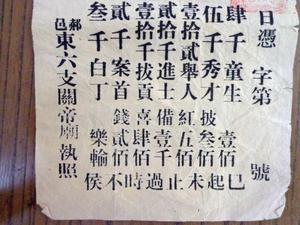 日憑 字第 號
肆千童生 壹佰巳
伍千秀才 披 叁佰起
壹拾貳舉人 紅 五佰未
壹拾貳千進士 備 壹千止
壹拾千拔貢 喜 肆佰過
貳千案首 錢 貳佰時不
叁千白丁 樂輸侯
郝邑東六支關帝廟執照